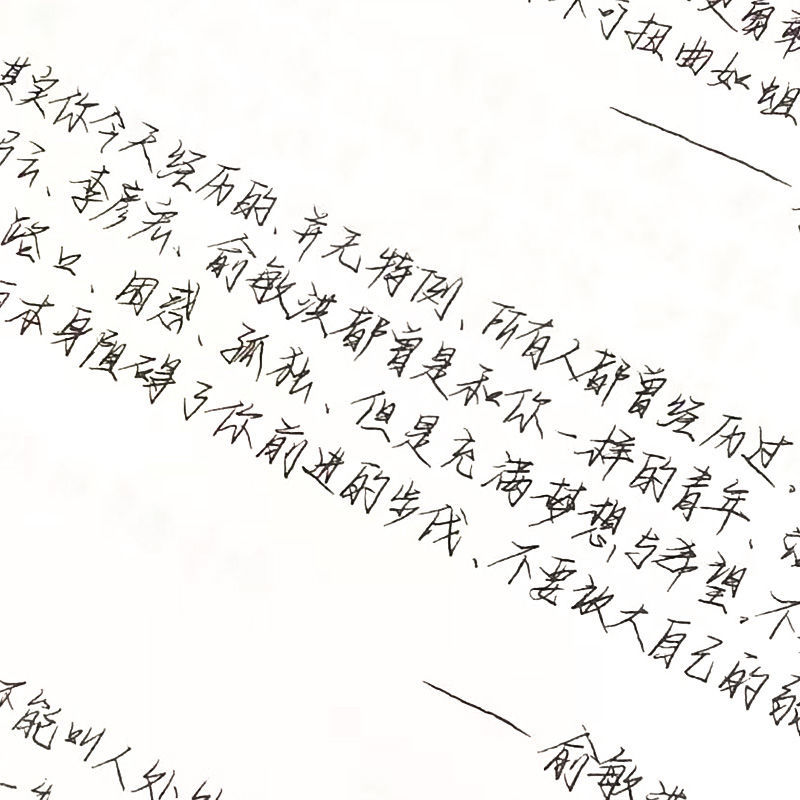 可扭曲如蛆
其实你今天经历的、并无特例、所有人都曾经历过。
云、李彦宏、俞敏洪都曾是和你一样的青年、
口、困惑、孤独、但是充满梦想与希望。不
本身阻碍了你前进的步伐、不要放大自己的
——俞敏洪
不能叫人处处